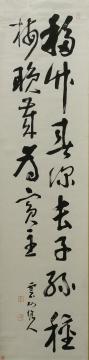 移竹春深長子孫種
梅晚歲為賓主
雲山人